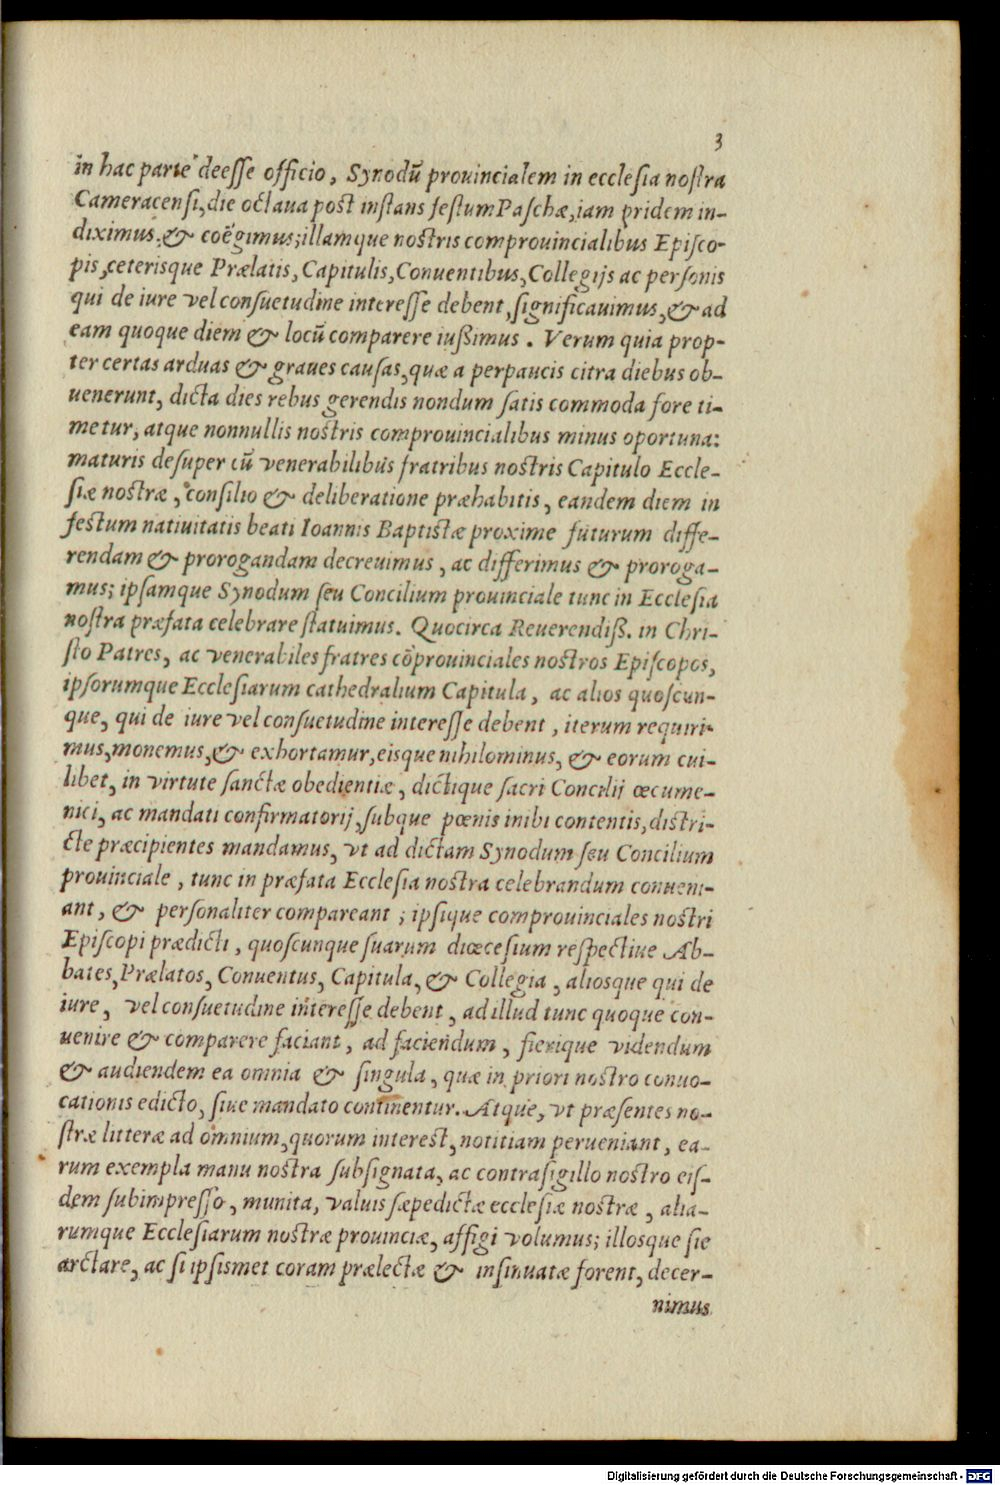 3
in hac parte deesse officio, Synodū prouincialem in ecclesia nostra
Cameracensi, die octaua post instans festum Paschæ, iam pridem in-
diximus, & coëgimus; illamque nostris comprouincialibus Episco-
pis, ceterisque Prælatis, Capitulis, Conuentibus, Collegijs ac personis
qui de iure vel consuetudine interesse debent, significauimus, & ad
eam quoque diem & locū comparere iußimus. Verum quia prop-
ter certas arduas & graues causas, quæ a perpaucis citra diebus ob-
uenerunt, dicta dies rebus gerendis nondum satis commoda fore ti-
metur, atque nonnullis nostris comprouincialibus minus oportuna:
maturis desuper cū venerabilibus fratribus nostris Capitulo Eccle-
siæ nostræ, consilio & deliberatione præhabitis, eandem diem in
festum natiuitatis beati Ioannis Baptistæ proxime futurum diffe-
rendam & prorogandam decreuimus, ac differimus & proroga-
mus; ipsamque Synodum seu Concilium prouinciale tunc in Ecclesia
nostra præfata celebrare statuimus. Quocirca Reuerendiß. in Chri-
sto Patres, ac venerabiles fratres cōprouinciales nostros Episcopos,
ipsorumque Ecclesiarum cathedralium Capitula, ac alios quoscun-
que, qui de iure vel consuetudine interesse debent, iterum requiri-
mus, monemus, & exhortamur, eisque nihilominus, & eorum cui-
libet, in virtute sanctæ obedientiæ, dictique sacri Concilij œcume-
nici, ac mandati confirmatorij, subque pœnis inibi contentis, distri-
cte præcipientes mandamus, vt ad dictam Synodum seu Concilium
prouinciale, tunc in præfata Ecclesia nostra celebrandum conueni-
ant, & personaliter compareant; ipsique comprouinciales nostri
Episcopi prædicti, quoscunque suarum diœcesium respectiue Ab-
bates, Prælatos, Conuentus, Capitula, & Collegia, aliosque qui de
iure, vel consuetudine interesse debent, ad illud tunc quoque con-
uenire & comparere faciant, ad faciendum, fierique videndum
& audiendem ea omnia & singula, quæ in priori nostro conuo-
cationis edicto, siue mandato continentur. Atque, vt præsentes no-
stræ litteræ ad omnium, quorum interest, notitiam perueniant, ea-
rum exempla manu nostra subsignata, ac contrasigillo nostro eis-
dem subimpresso, munita, valuis sæpedictæ ecclesiæ nostræ, alia-
rumque Ecclesiarum nostræ prouinciæ, affigi volumus; illosque sic
arctare, ac si ipsismet coram prælectæ & insinuatæ forent, decer-
nimus
Digitalisierung gefördert durch die Deutsche Forschungsgemeinschaft - DFG